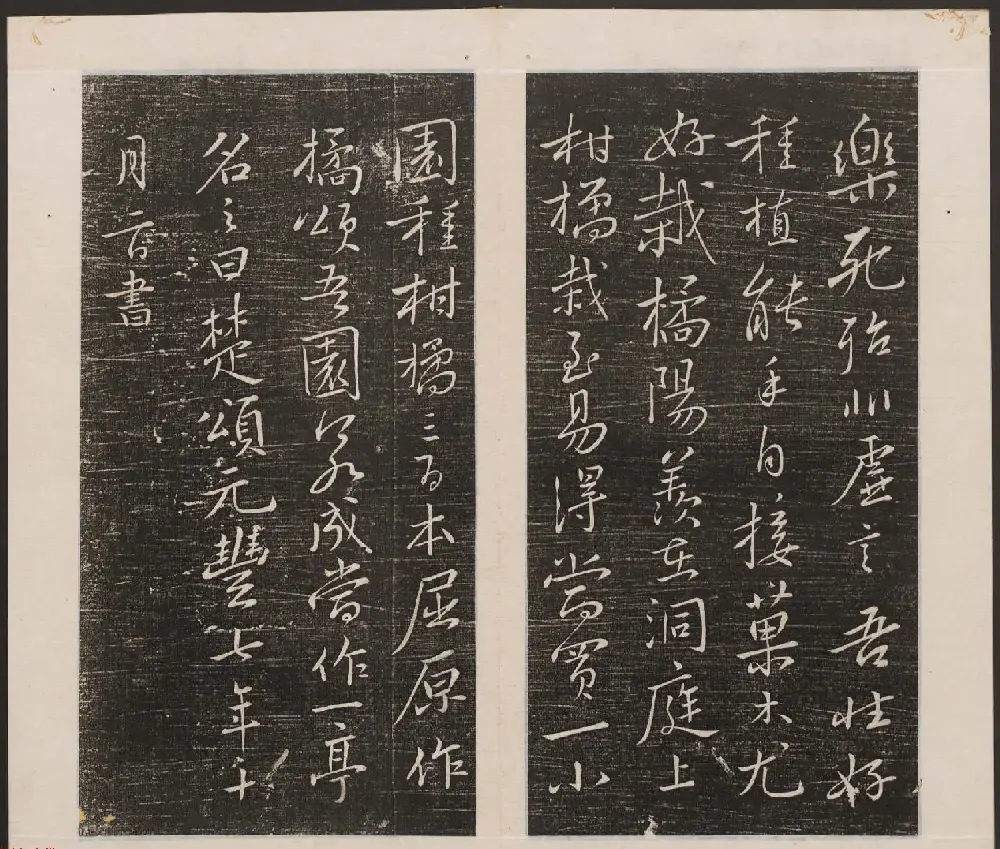 樂死殆非虛言吾性好
種植能手自接菓木尤
好栽橘陽羨在洞庭上
柑橘栽至易得當買一小
園種柑橘三百本屈原作
橘頌吾園若成當作一亭
名之曰楚頌元豐七年十
月二日書